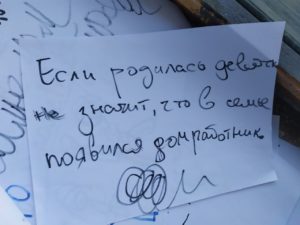 Если родилась девочка
не значит, что в семье
появился домработник